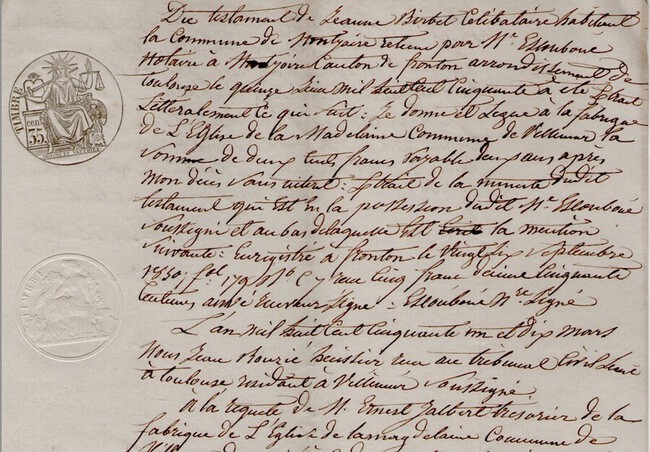 Du testament de Jeanne Birbet Célibataire habitant
la Commune de retenu par Me Eslouboué
Notaire à Montjoire Canton de fronton arrondissement de
toulouse le quinze Juin mil huit cent Cinquante a été Extrait
Litteralement Ce qui Suit : Je donne et Legue à la fabrique
de L'Eglise de la Madelaine Commune de Villemur la
Somme de deux cents francs payable deux ans après
mon décès Sans intérêt : Extrait de la minute dudit
testament qui est en la possession dudit Me Eslouboué
Soussigné et au bas de laquelle est la mention
Suivante : Enregistré à fronton le Vingt six Septembre
1850 fol. 179 Ro C 7 reçu Cinq francs décime Cinquante
Centimes Signé : Eslouboué Nre Signé
L'an mil huit Cent Cinquante un et dix mars
Nous Jean Huissier reçu au tribunal Civil Séant
à toulouse résidant à Villemur Soussigné.
A la requête de M. Ernest Jalbert trésorier de la
fabrique de L'Eglise de la magdelaine Commune de
TIMBRE
35 cen